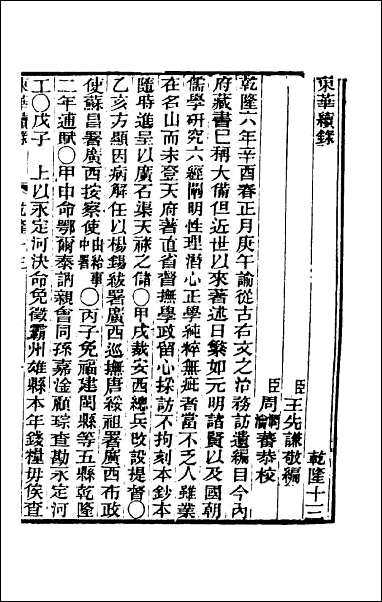 東華續錄　乾隆十三
臣王先謙敬編
臣周潤蕃瀹蕃恭校
乾隆六年辛酉春正月庚午諭從古右文之治務訪遺編目今內
府藏書已稱大備但近世以來著述日繁如元明諸賢以及國朝
儒學研究六經闡明性理潛心正學純粹無疵者當不乏人雖業
在名山而未登天府著直省督撫學政留心採訪不拘刻本鈔本
隨時進呈以廣石渠天祿之儲〇甲戌裁安西總兵改設提督〇
乙亥方顯因病解任以楊錫紱署廣西巡撫唐綏祖署廣西布政
使蘇昌署廣西按察使由給事中署〇丙子免福建閩縣等五縣乾隆
二年逋賦〇甲申命鄂爾泰訥親會同孫嘉淦顧琮查勘永定河
工〇戊子　上以永定河決命免徵霸州雄縣本年錢糧毋俟查
東華續錄　乾隆十三